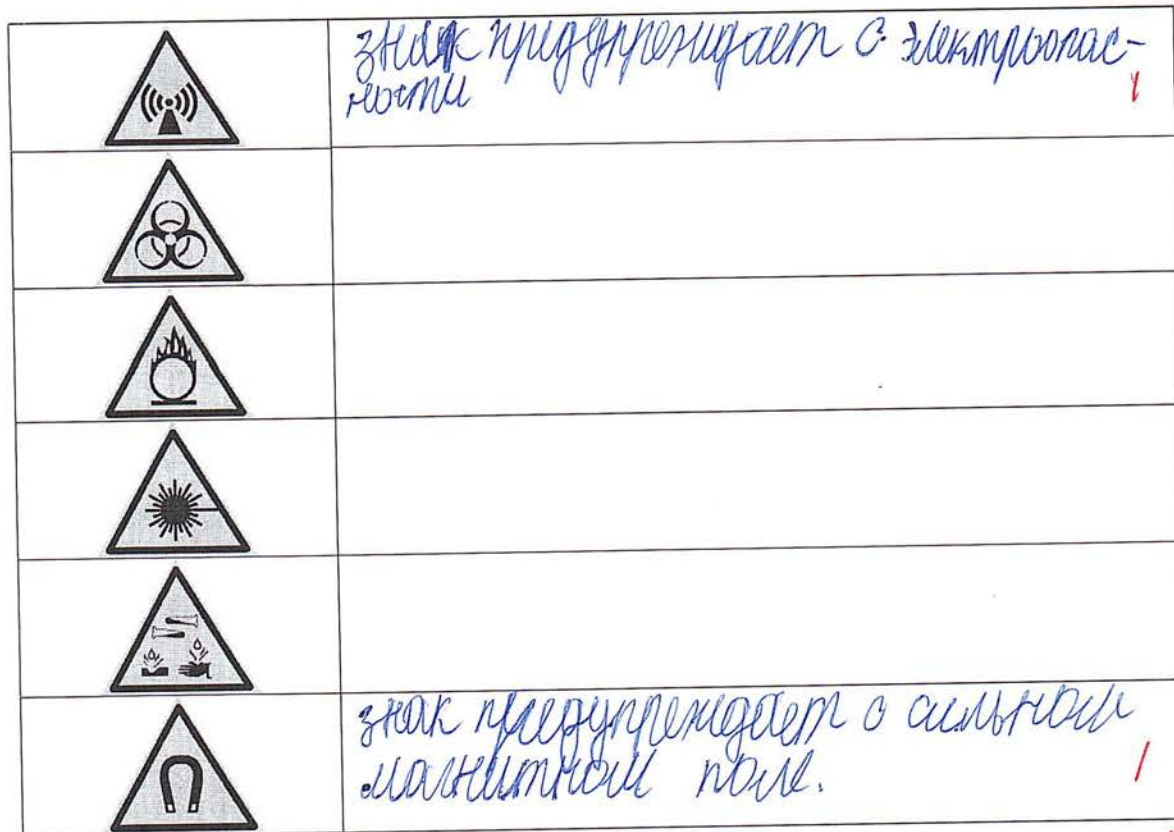 знак предупреждает о электроопас-
ности
1
знак предупреждает о сильном
магнитном поле.
1